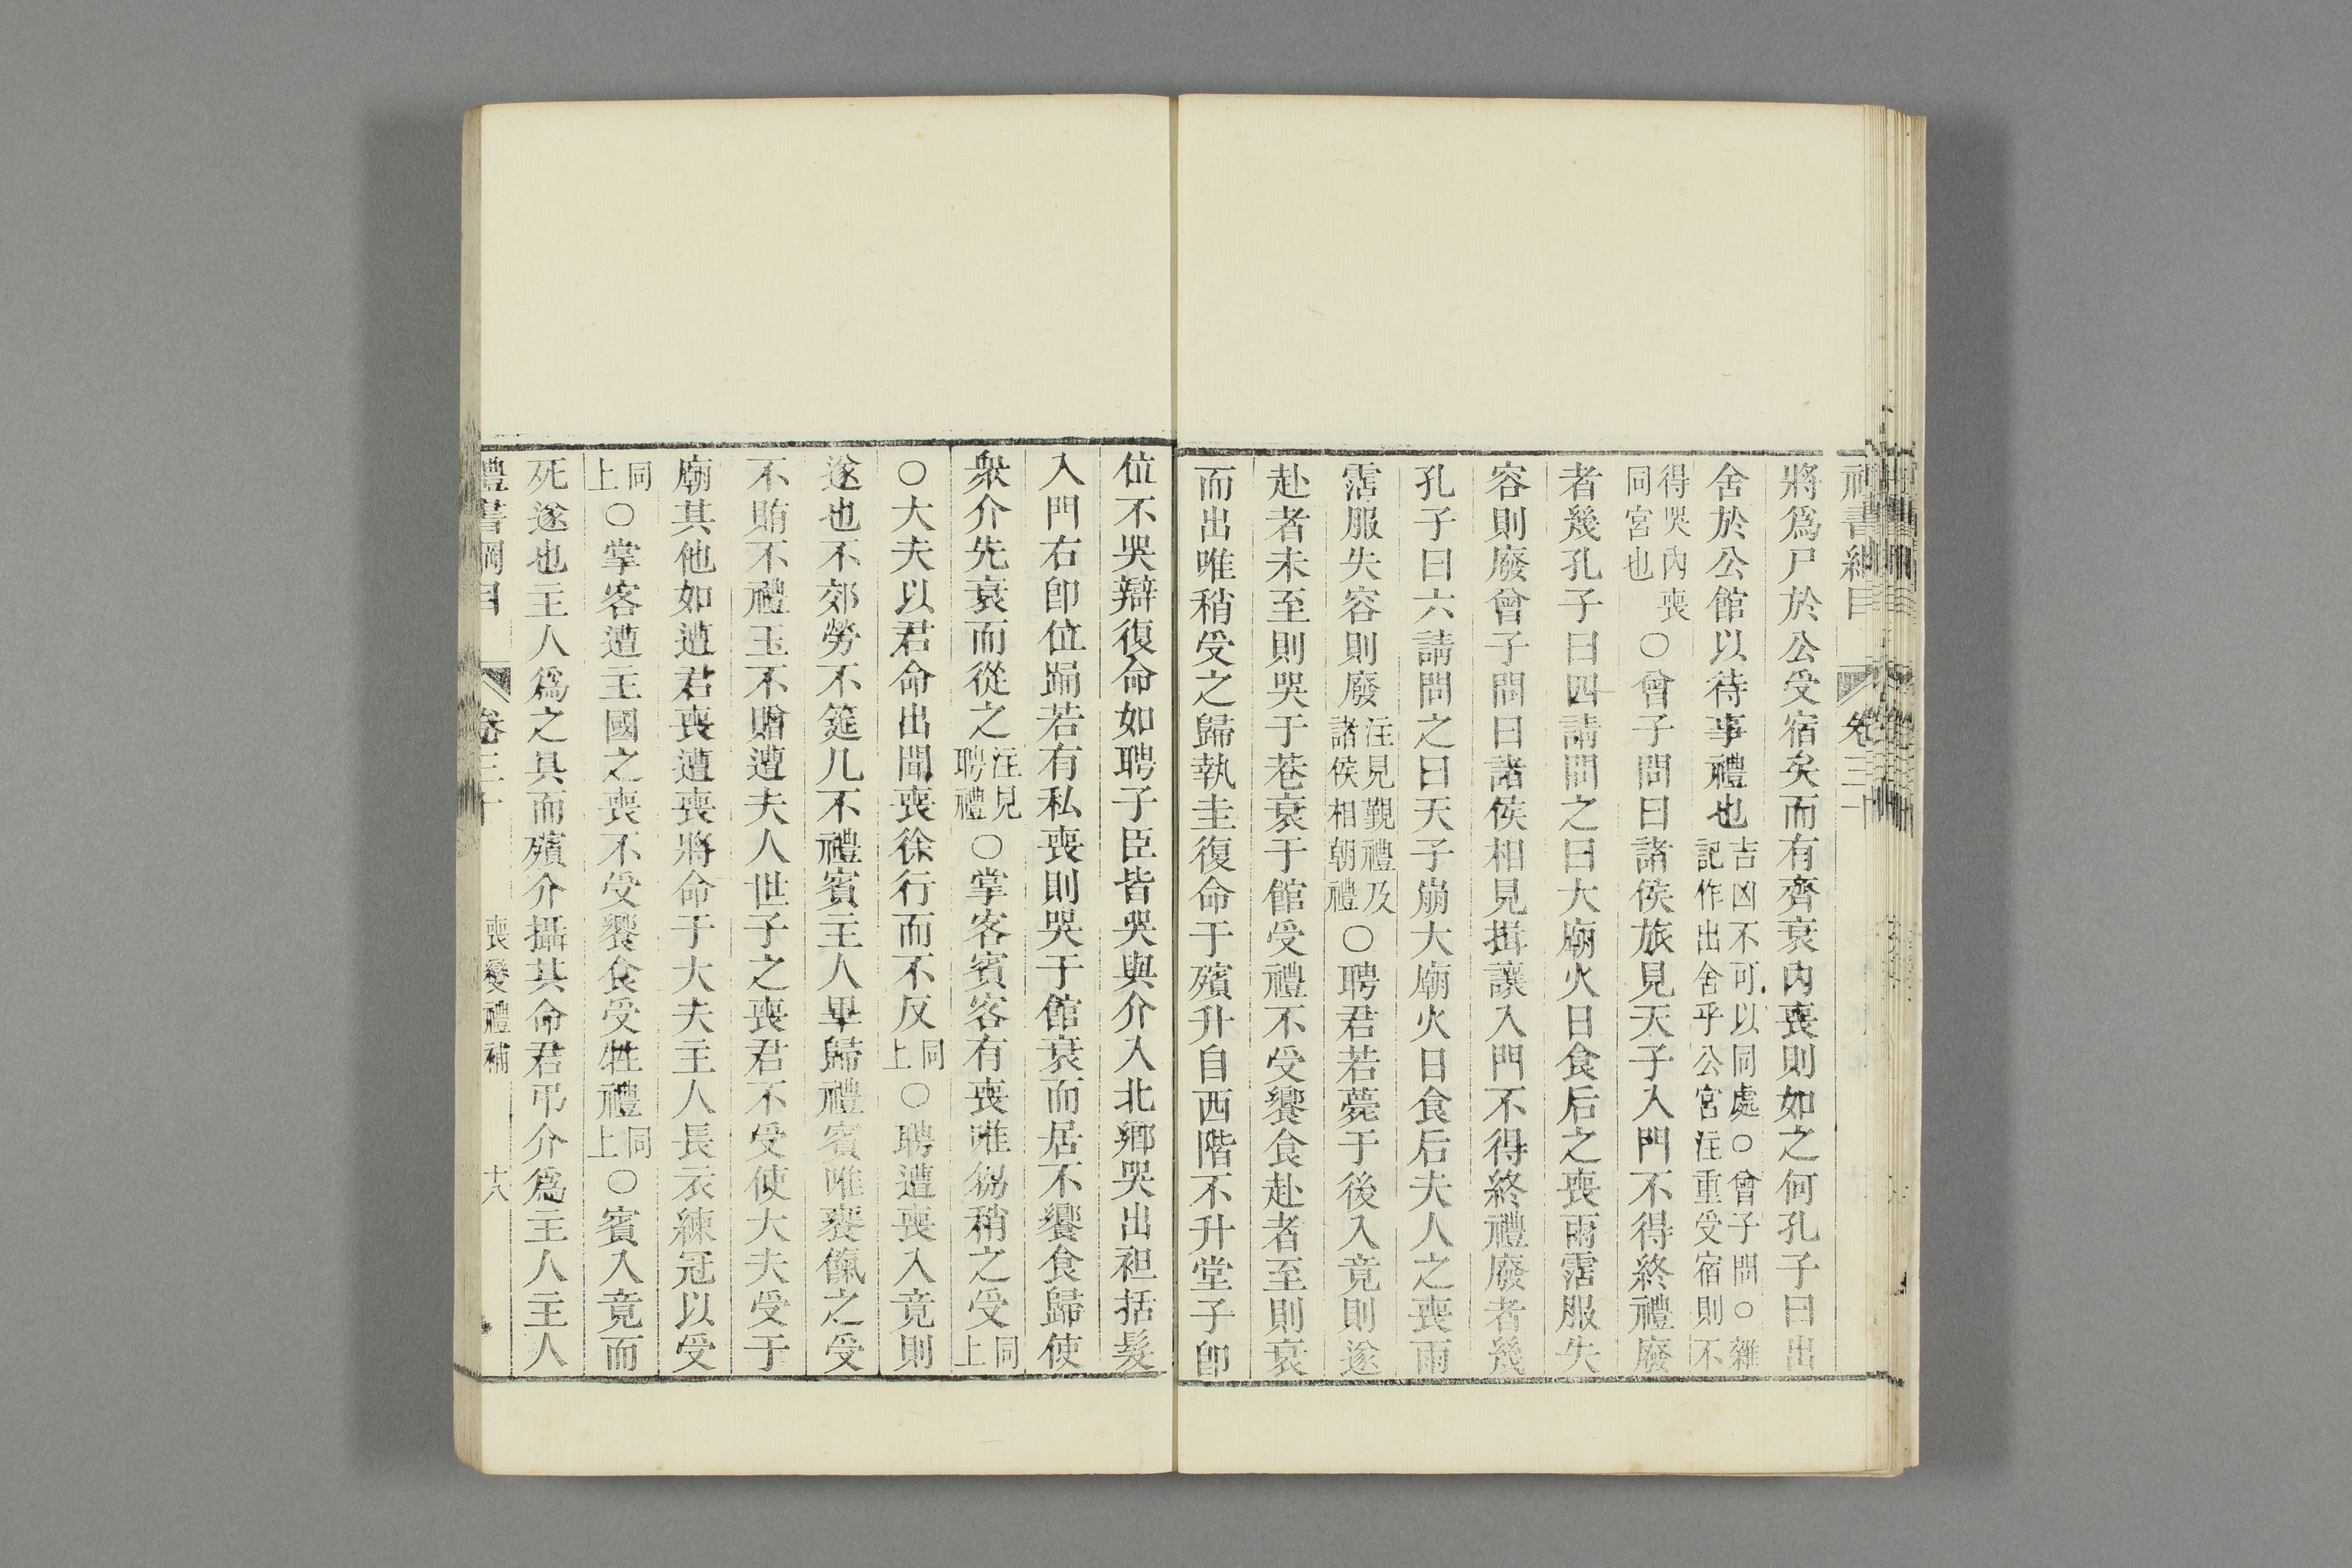 將爲尸於公受宿矣而有齊衰内喪則如之何孔子曰出
舍於公館以待事禮也吉凶不可以同處○曾子問○雜記作出舍乎公宮注重受宿則不
得哭内喪同宮也○曾子問曰諸侯旅見天子入門不得終禮廢
者幾孔子曰四請問之曰大廟火日食后之喪雨霑服失
容則廢曾子問曰諸侯相見揖讓入門不得終禮廢者幾
孔子曰六請問之曰天子崩大廟火日食后夫人之喪雨
霑服失容則廢注見覲禮及諸侯相朝禮○聘君若薨于後入竟則遂
赴者未至則哭于巷衰于館受禮不受饗食赴者至則衰
而出唯稍受之歸執圭復命于殯升自西階不升堂子卽
位不哭辯復命如聘子臣皆哭與介入北鄉哭出袒括髮
入門右卽位踊若有私喪則哭于館衰而居不饗食歸使
衆介先衰而從之注見聘禮○掌客賓客有喪唯芻稍之受同上
○大夫以君命出聞喪徐行而不反同上○聘遭喪入竟則
遂也不郊勞不筵几不禮賓主人畢歸禮賓唯饔餼之受
不賄不禮玉不贈遭夫人世子之喪君不受使大夫受于
廟其他如遭君喪遭喪將命于大夫主人長衣練冠以受
同上○掌客遭主國之喪不受饗食受牲禮同上○賓入竟而
死遂也主人爲之具而殯介攝其命君弔介爲主人主人
禮書綱目 卷三十 喪變禮補 十八